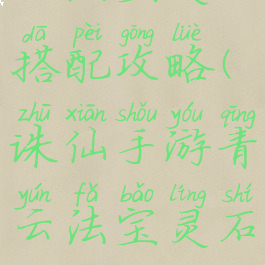 dā pèi gōng lüè
搭配攻略(
zhū xiān shǒu yóu qīng
诛仙手游青
yún fǎ bǎo líng shí
云法宝灵石